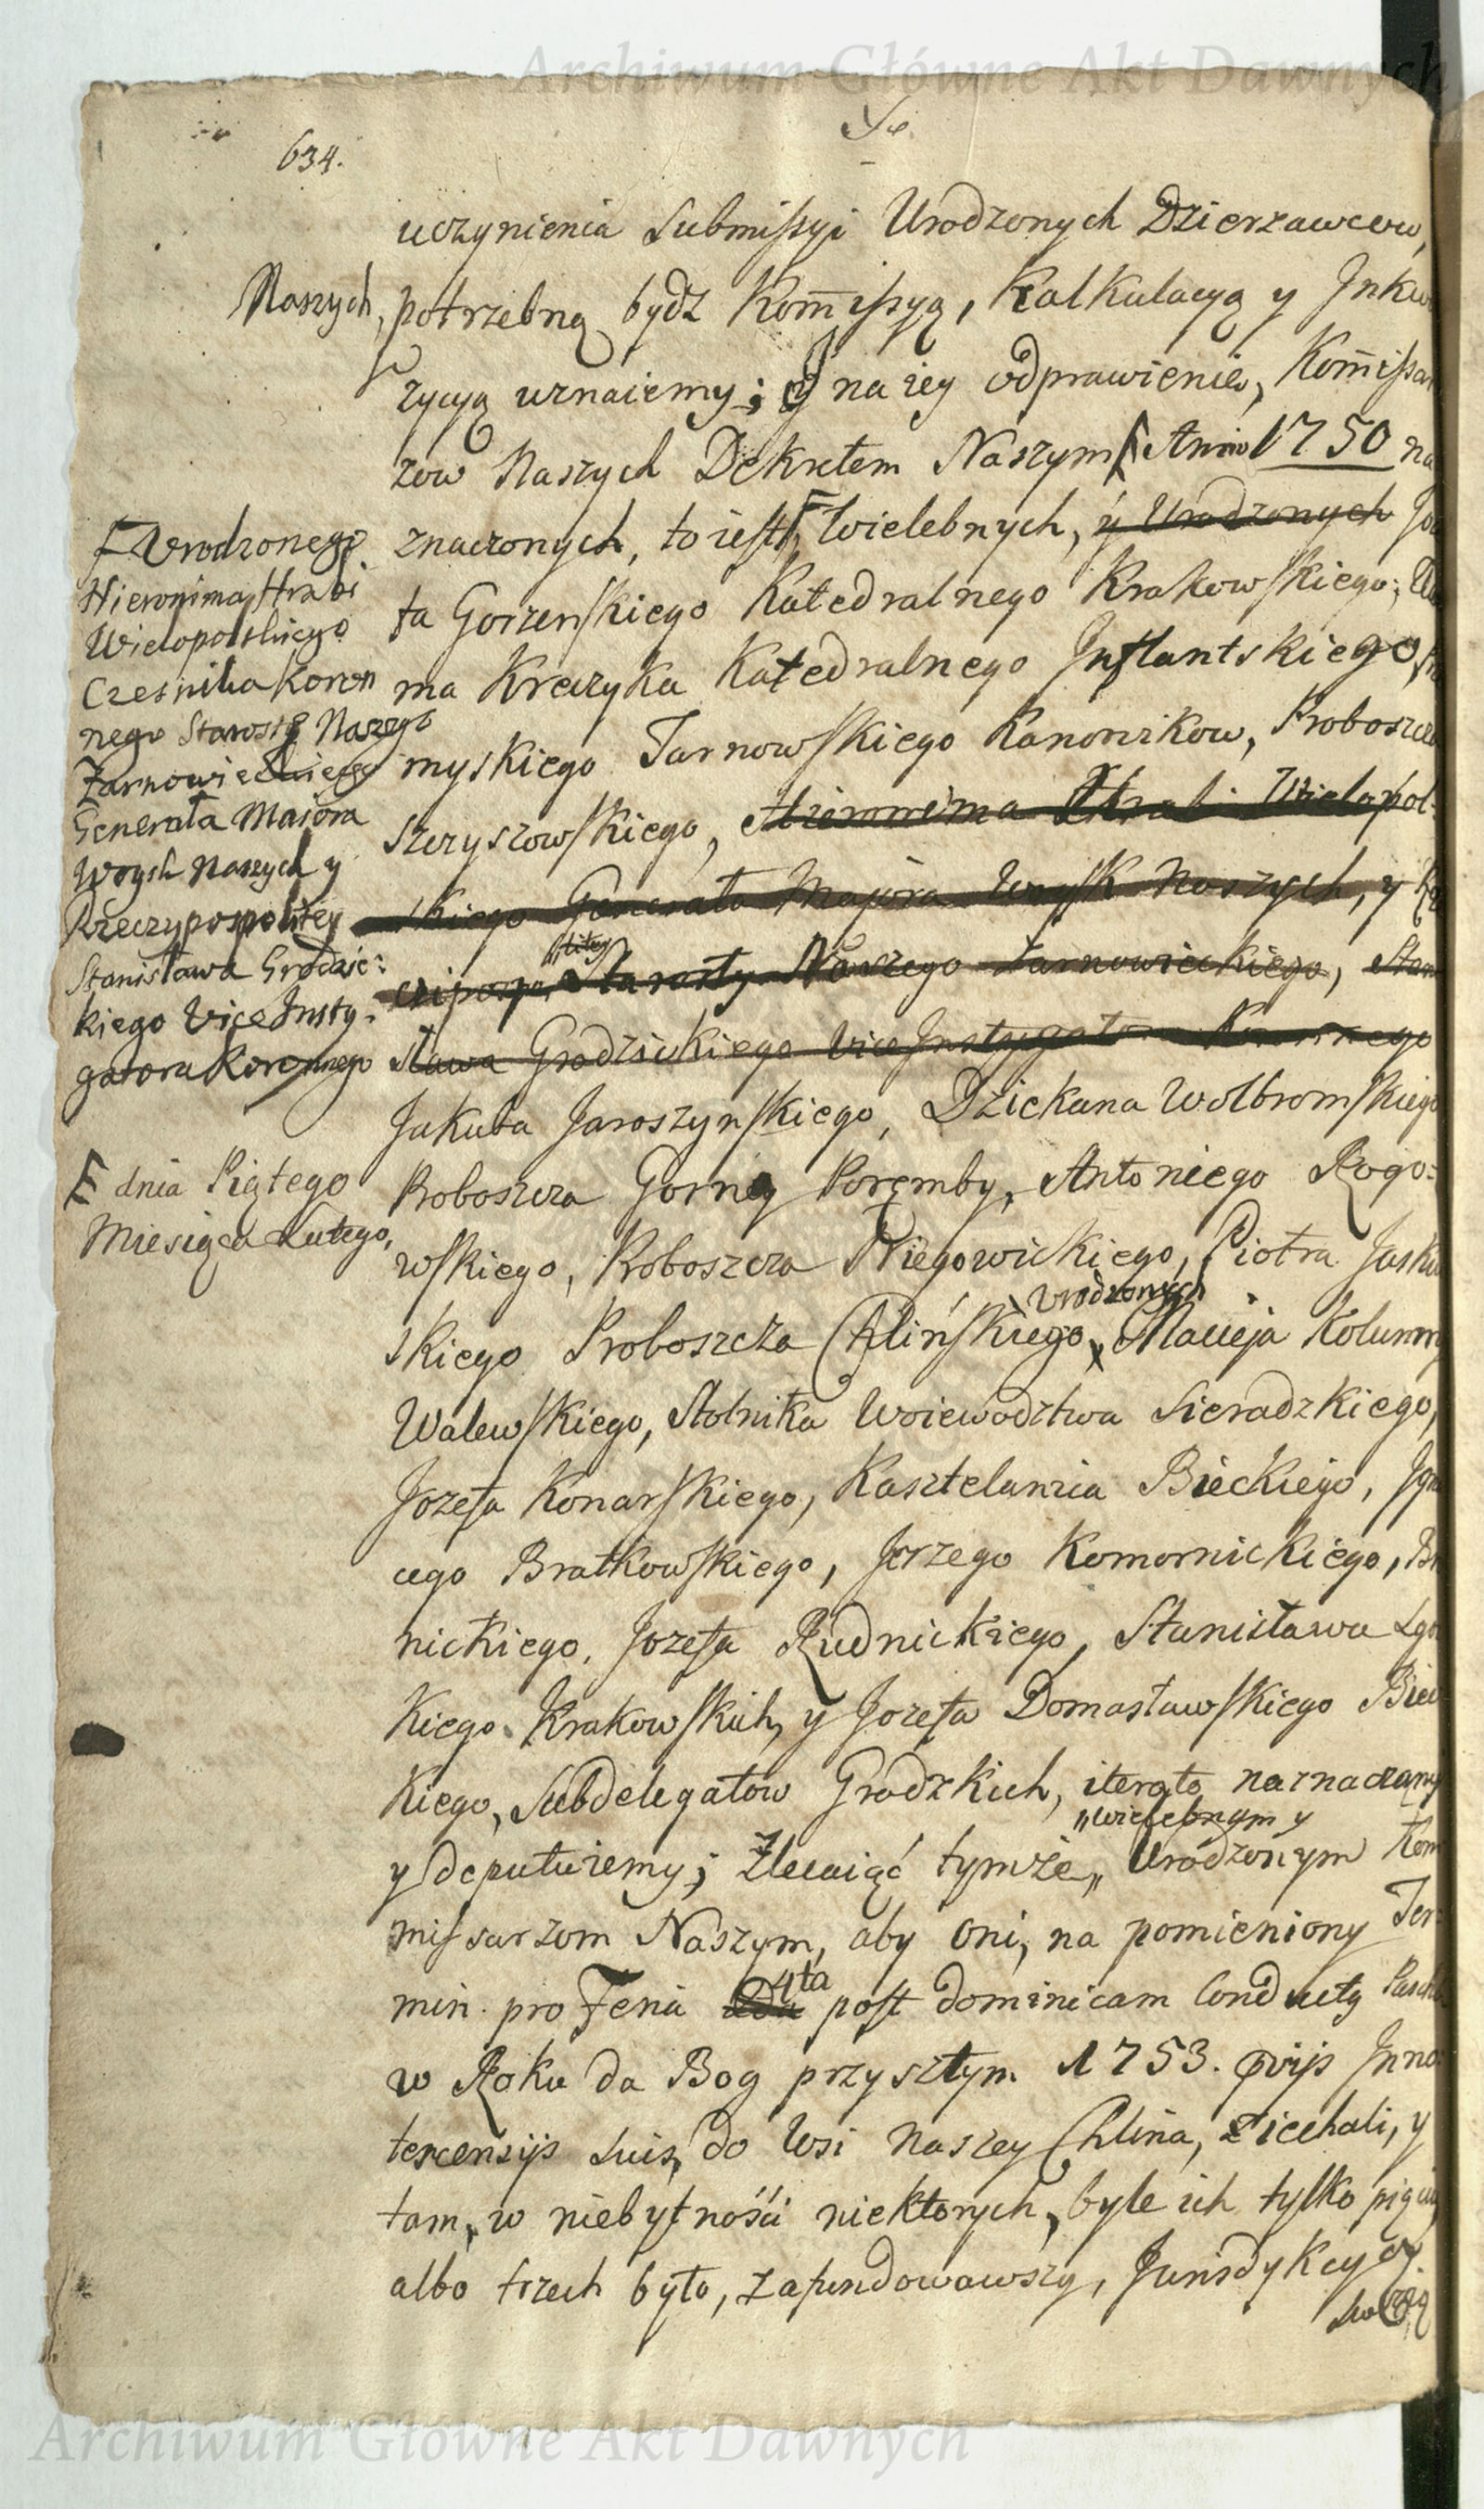 Archiwum Główne Akt Dawnych
634.
uczynienia Submissyi Urodzonych Dzierzawcow,
Naszych, potrzebną bydz Kommissyą, Kalkulacyą y Inkwi
zycyą uznaiemy; y na iey odprawienie, Kommissar
zow Naszych Dekretem Naszym Anno 1750 na
znaczonych, to iest Wielebnych, y Urodzonych Jo
ta Gorzenskiego Katedralnego Krakowskiego,
ma Kreczyka Katedralnego Inflantskiego,
myskiego Tarnowskiego Kanonikow, Proboszcza
szczyszowskiego, Hieronima Hrabi Wielopol-
skiego Generała Majora Woysk Naszych, y Rze
czipospolitey Starosty Naszego Żarnowieckiego, Stani
sława Grodzickiego Vice Instygatora Koronnego
Jakuba Jaroszynskiego, Dziekana Wolbromskiego
Proboszcza Gorney Poręmby, Antoniego Rogo:
wskiego, Proboszcza Niegowickiego, Piotra Jasku
Urodzonych
skiego Proboszcza Chlińskiego, Macieja Kolumny
Walewskiego, Stolnika Woiewodztwa Sieradzkiego,
Jozefa Konarskiego, Kasztelanica Bieckiego, Igna
cego Bratkowskiego, Jerzego Komornickiego, Br
nickiego, Jozefa Rudnickiego, Stanisława Lgo
kiego Krakowskich, y Jozefa Domasławskiego Biec
kiego, Subdelegatow Grodzkich, iterato naznaczamy
"Wielebnym y
y deputuiemy; Zlecaiąć tymże" Urodzonym Kom
missarzom Naszym, aby oni, na pomieniony Ter
min pro Feria 4ta post dominicam Conductg Pasch
w Roku da Bog przyszłym 1753. ovijs Inno
tescensijs suis, do Wsi Naszey Chlina, ziechali, y
tam, w niebytnośći niektorych, byle ich tylko pięciu
albo trzech było, zafundowawszy, Jurisdykcyą
swoię
F Urodzonego
Hieronima Hrabi
Wielopolskiego
Czesnika koron
nego Starosty Naszego
Żarnowieckiego
Generała Maiora
Woysk Naszych y
Rzeczypospolitey
Stanisława Grodzic:
kiego Vice Insty:
gatora Koronnego
E dnia Piątego
Miesiąca Lutego,
Archiwum Główne Akt Dawnych